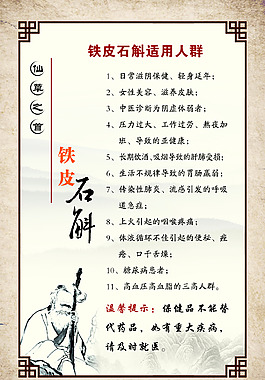 铁皮石斛适用人群
仙草之首
铁皮
石斛
1、日常滋阴保健、轻身延年；
2、女性美容、滋养皮肤；
3、中医诊断为阴虚体弱者；
4、压力过大、工作过劳、熬夜加
班、导致的亚健康；
5、长期饮酒,吸烟导致的肝肺受损；
6、生活不规律导致的胃肠羸弱；
7、传染性肺炎、流感引发的呼吸
道急症；
8、上火引起的咽喉疼痛；
9、体液循环不佳引起的便秘、痤
疮、口干舌燥；
10、糖尿病患者；
11、高血压高血脂的三高人群。
温馨提示：保健品不能替
代药品，如有重大疾病，
请及时就医。